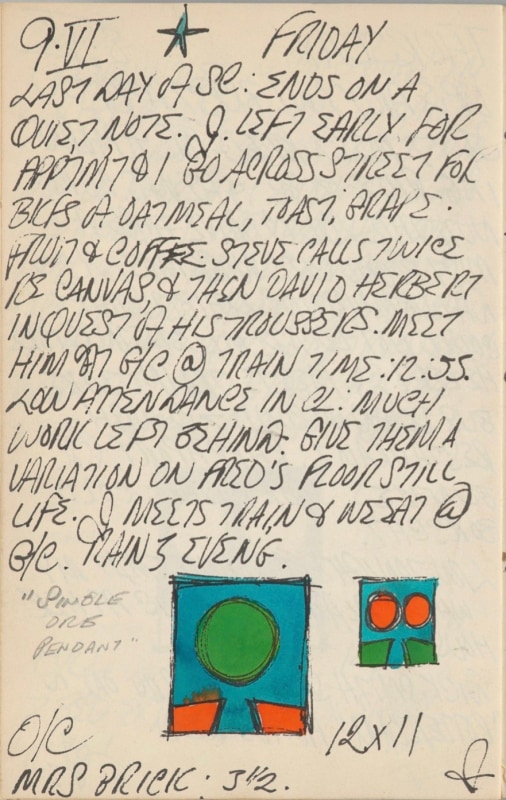 9·VI FRIDAY
LAST DAY OF SC: ENDS ON A
QUIET NOTE. J. LEFT EARLY FOR
APPTM'T & I GO ACROSS STREET FOR
BKFS OF OATMEAL, TOAST, GRAPE·
FRUIT & COFFEE. STEVE CALLS TWICE
RE CANVAS, & THEN DAVID HERBERT
IN QUEST OF HIS TROUSSERS. MEET
HIM AT G/C @ TRAIN TIME: 12:55.
LOW ATTENDANCE IN CL: MUCH
WORK LEFT BEHIND. GIVE THEM A
VARIATION ON FRED'S FLOOR STILL
LIFE. J MEETS TRAIN & WE EAT @
G/C. RAIN Z EVENG.
"SINGLE
ORB
PENDANT"
O/C 12x11
MRS BRICK· 3 1/2.